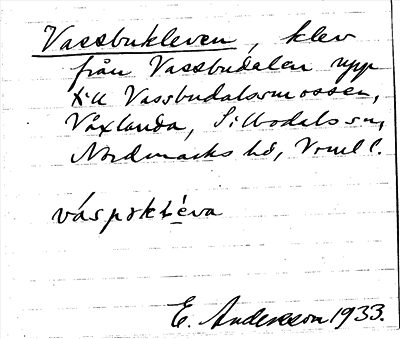 Vassbukleven, klev
från Vassbudalen upp
till Vassbudalsmossen,
Växlanda, Sillbodals sn,
Nordmarks hd, Vrml.
váspʊklèva
E. Andersson 1933.